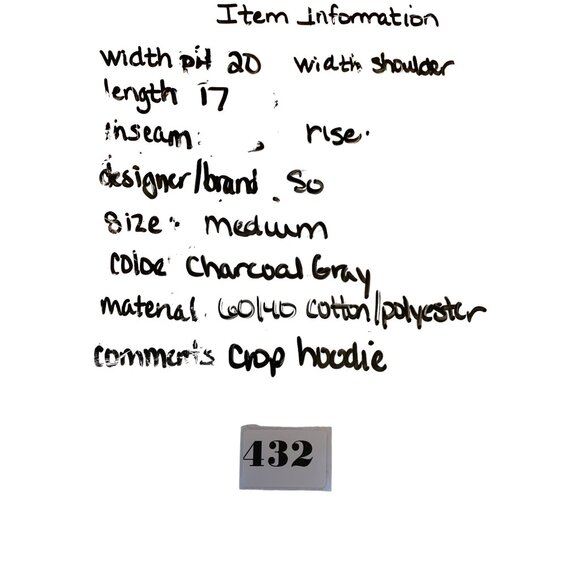 Item Information
width pit 20 width shoulder
length 17
inseam: rise.
designer/brand. So
size: medium
color charcoal Gray
material. 60/40 cotton/polyester
comments crop hoodie
432